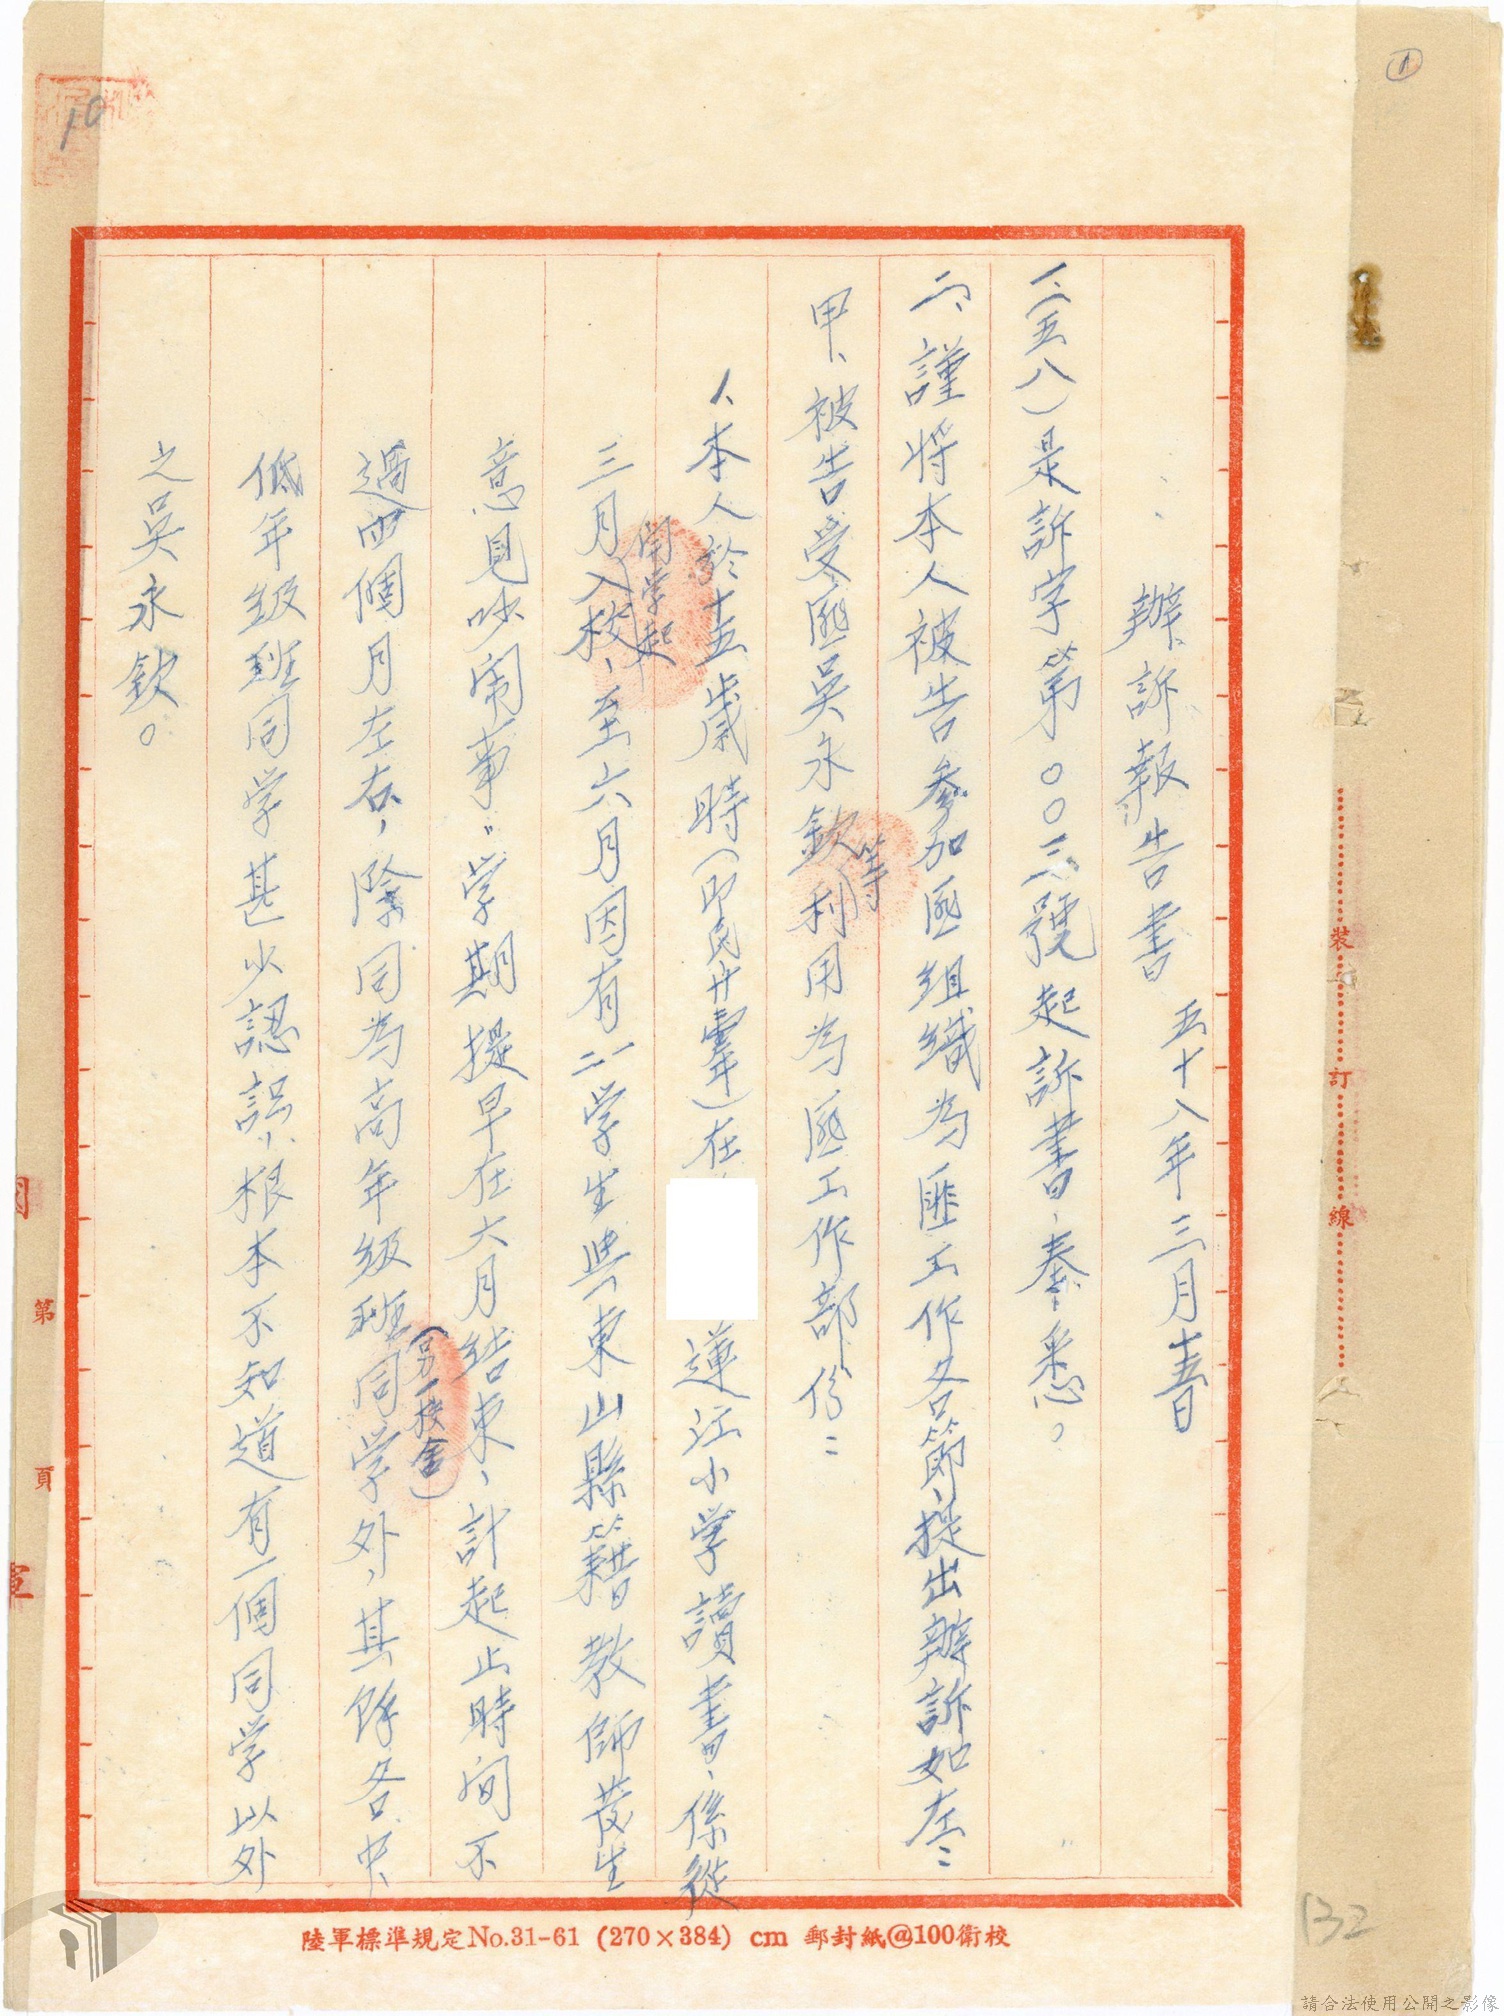 辦訴報告書　五十八年三月十五日
一、(五八)是訴字第〇〇三號起訴書、奉悉。
二、謹將本人被告參加匪組織為匪工作各節、提出辦訴如左：
甲、被告受匪吳永欽等利用為匪工作部份：
1、本人於十五歲時(即民廿四年)在 蓮江小学讀書、係從
三月開学起入校、至六月因有二學生與東山縣籍教師發生
意見吵鬧事〝学期提早在六月結束、計起止時间不
過四個月左右，除同為高年級班同学外(另一校舍)，其餘各中、
低年級班同学甚少認識、根本不知道有一個同学以外
之吳永欽。
裝
訂
線
第
頁
10
1
132
陸軍標準規定No.31-61 (270×384) cm 郵封紙@100衛校
請合法使用公開之影像